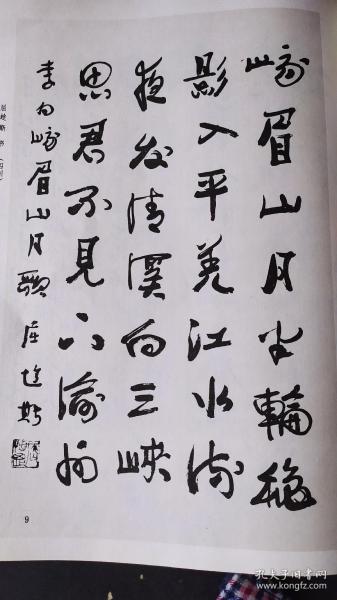 峨眉山月半輪秋
影入平羌江水流
夜发清溪向三峡
思君不見下渝州
李白峨眉山月歌
9
孔夫子旧书网
kongfz.com